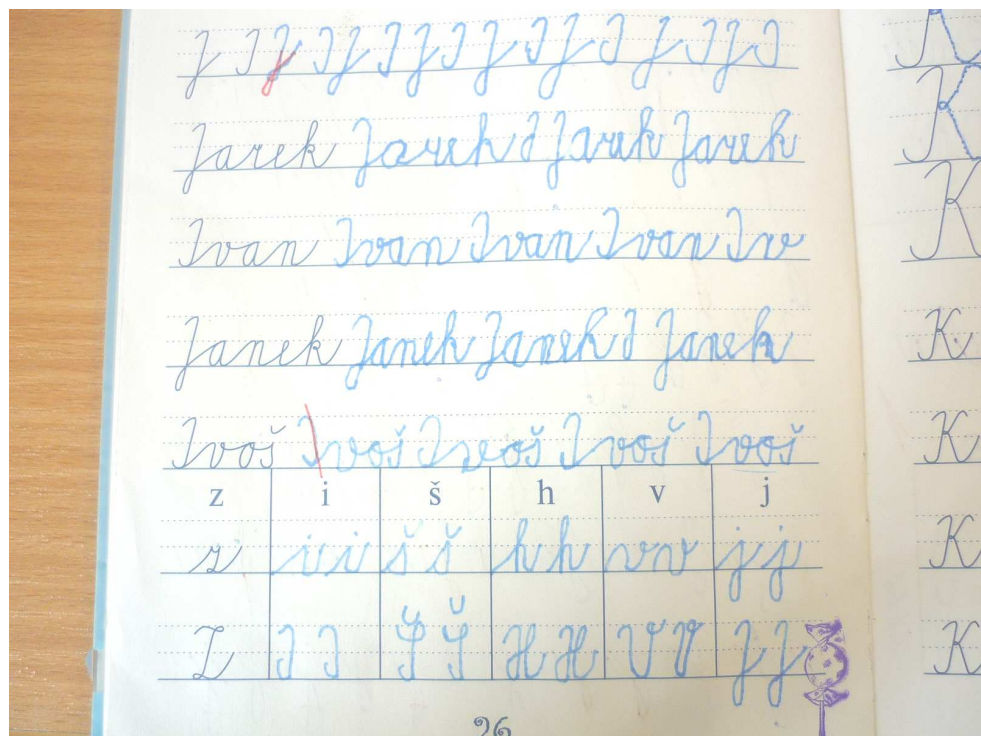 J I J I J I J I J I J I J I J I
Jarek Jarek J Jarek Jarek
Ivan Ivan Ivan Ivan Iv
Janek Janek Janek J Janek
Ivoš Ivoš Ivoš Ivoš Ivoš
z i š h v j
z i i š š h h v v j j
Z I I Š Š H H V V J J
26
K
K
K
K
K
K
K